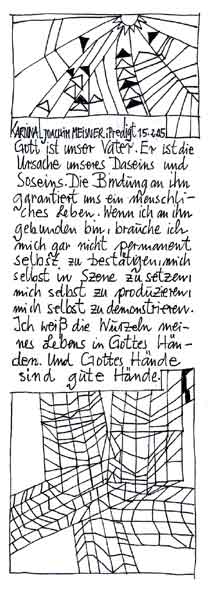 KARDINAL JOACHIM MEISNER, Predigt 15.2.05
Gott ist unser Vater. Er ist die
Ursache unseres Daseins und
Soseins. Die Bindung an ihn
garantiert uns ein menschli-
ches Leben. Wenn ich an ihn
gebunden bin, brauche ich
mich gar nicht permanent
selbst zu bestätigen, mich
selbst in Szene zu setzen,
mich selbst zu produzieren,
mich selbst zu demonstrieren.
Ich weiß die Wurzeln mei-
nes Lebens in Gottes Hän-
den. Und Gottes Hände
sind gute Hände.